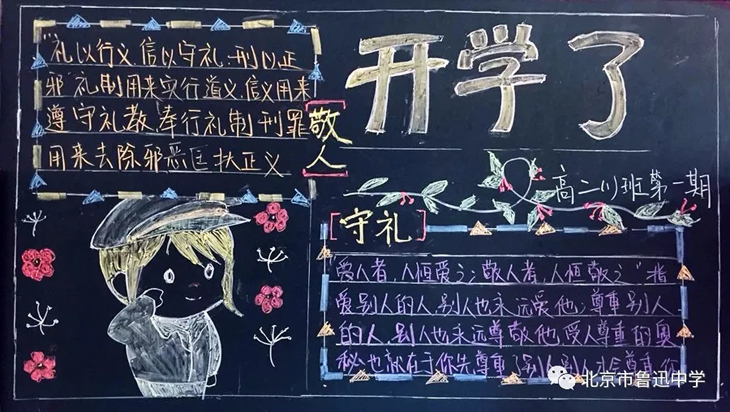 开学了
高二(1)班第一期
"礼以行义,信以守礼,刑以正
邪"礼制用来实行道义,信义用来
遵守礼教,奉行礼制,刑罪
用来去除邪恶匡扶正义
[敬人]
[守礼]
"爱人者,人恒爱之;敬人者,人恒敬之"指
爱别人的人,别人也永远爱他;尊重别人
的人,别人也永远尊敬他,受人尊重的奥
秘也就在于你先尊重了别人,别人才会尊重你
北京市鲁迅中学